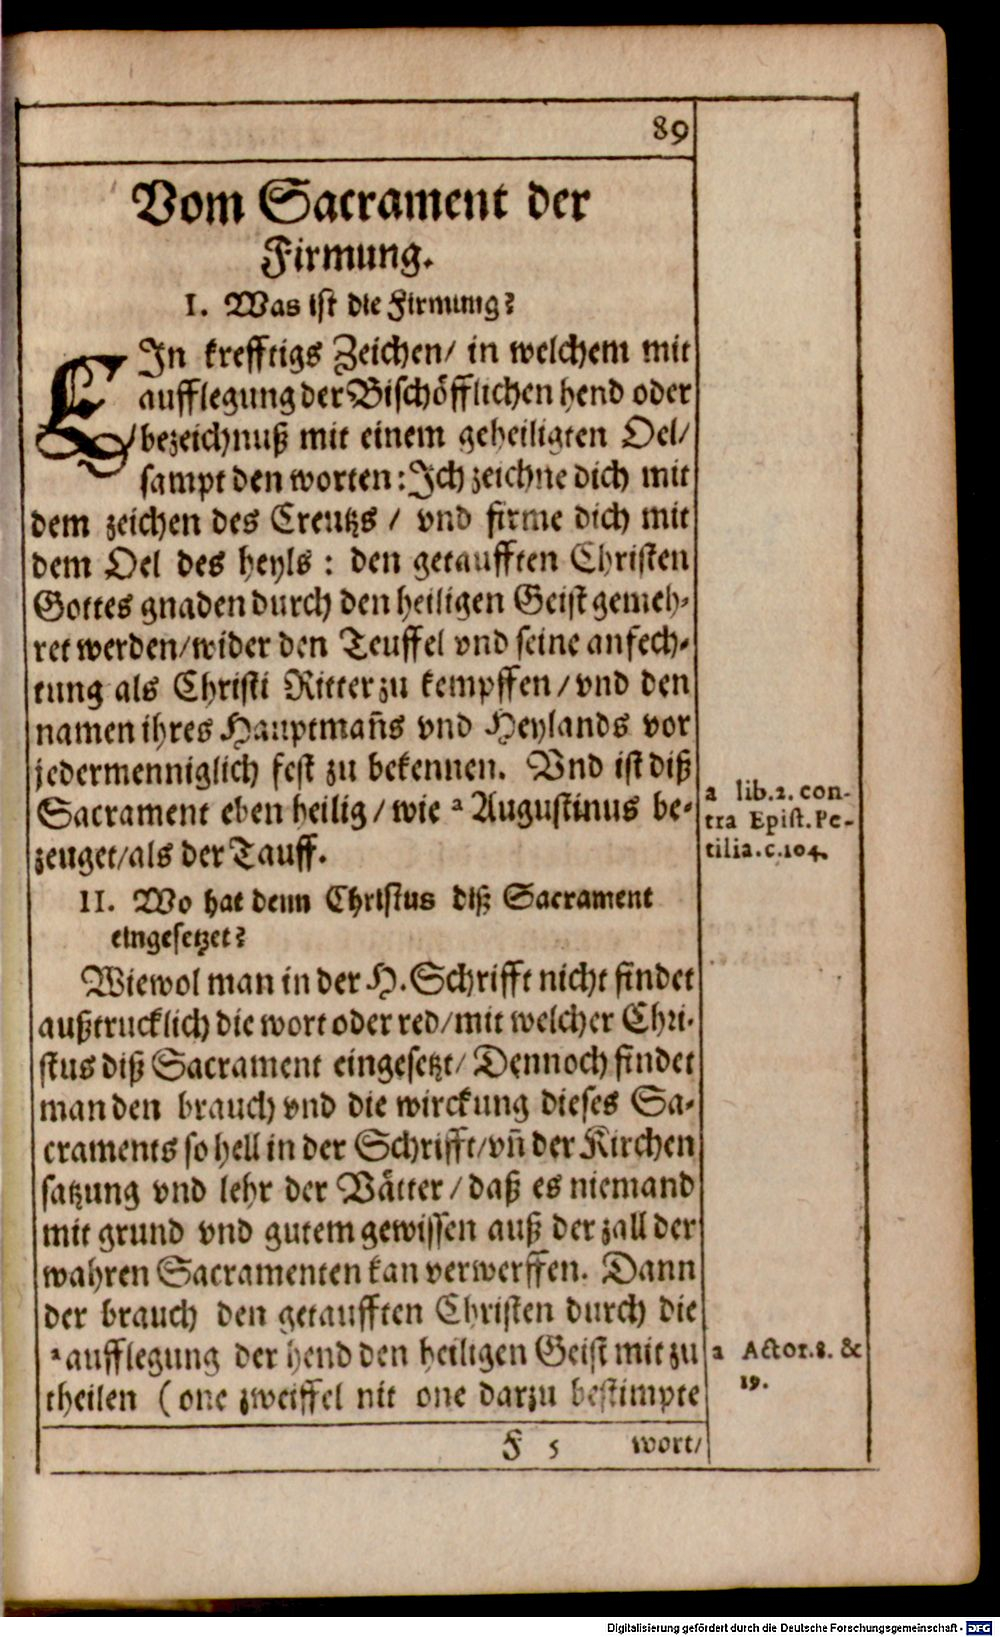 89
Vom Sacrament der
Firmung.
I. Was ist die Firmung?
EIn krefftigs Zeichen/ in welchem mit
aufflegung der Bischöfflichen hend oder
bezeichnuß mit einem geheiligten Oel/
sampt den worten: Ich zeichne dich mit
dem zeichen des Creutzs / vnd firme dich mit
dem Oel des heyls : den getaufften Christen
Gottes gnaden durch den heiligen Geist gemeh-
ret werden/wider den Teuffel vnd seine anfech-
tung als Christi Ritter zu kempffen/vnd den
namen ihres Hauptmañs vnd Heylands vor
jedermenniglich fest zu bekennen. Vnd ist diß
Sacrament eben heilig/wie a Augustinus be-
zeuget/als der Tauff.
a lib.2. con-
tra Epist. Pe-
tilia.c.104.
II. Wo hat denn Christus diß Sacrament
eingesetzet?
Wiewol man in der H. Schrifft nicht findet
außtrucklich die wort oder red/mit welcher Chri-
stus diß Sacrament eingesetzt/ Dennoch findet
man den brauch vnd die wirckung dieses Sa-
craments so hell in der Schrifft/vñ der Kirchen
satzung vnd lehr der Vätter/daß es niemand
mit grund vnd gutem gewissen auß der zall der
wahren Sacramenten kan verwerffen. Dann
der brauch den getaufften Christen durch die
a aufflegung der hend den heiligen Geist mit zu
theilen (one zweiffel nit one darzu bestimpte
a Actor.8. &
19.
F 5 wort/
Digitalisierung gefördert durch die Deutsche Forschungsgemeinschaft - DFG